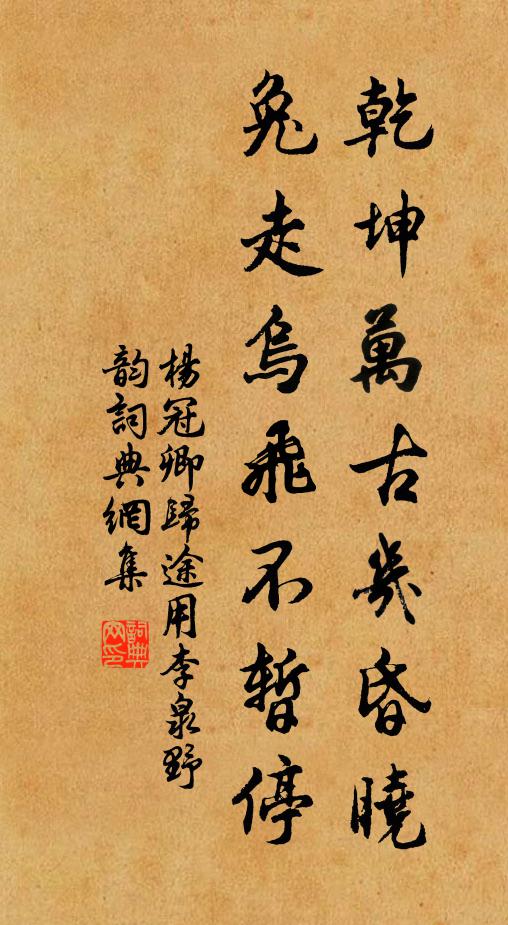 乾坤萬古幾昏曉
兔走烏飛不暫停
楊冠卿歸途用李泉野
韵詞典網集
詞典
网印